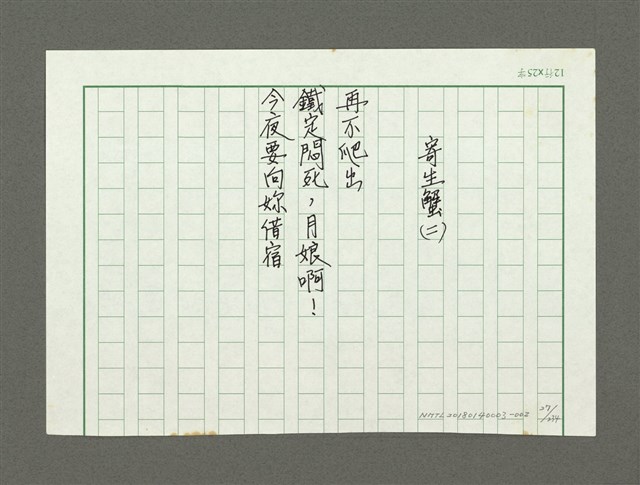 寄生蟹(二)
再不爬出
鐵定悶死，月娘啊！
今夜要向妳借宿
12行x25字
NMTL20180140003-002
27/
/034